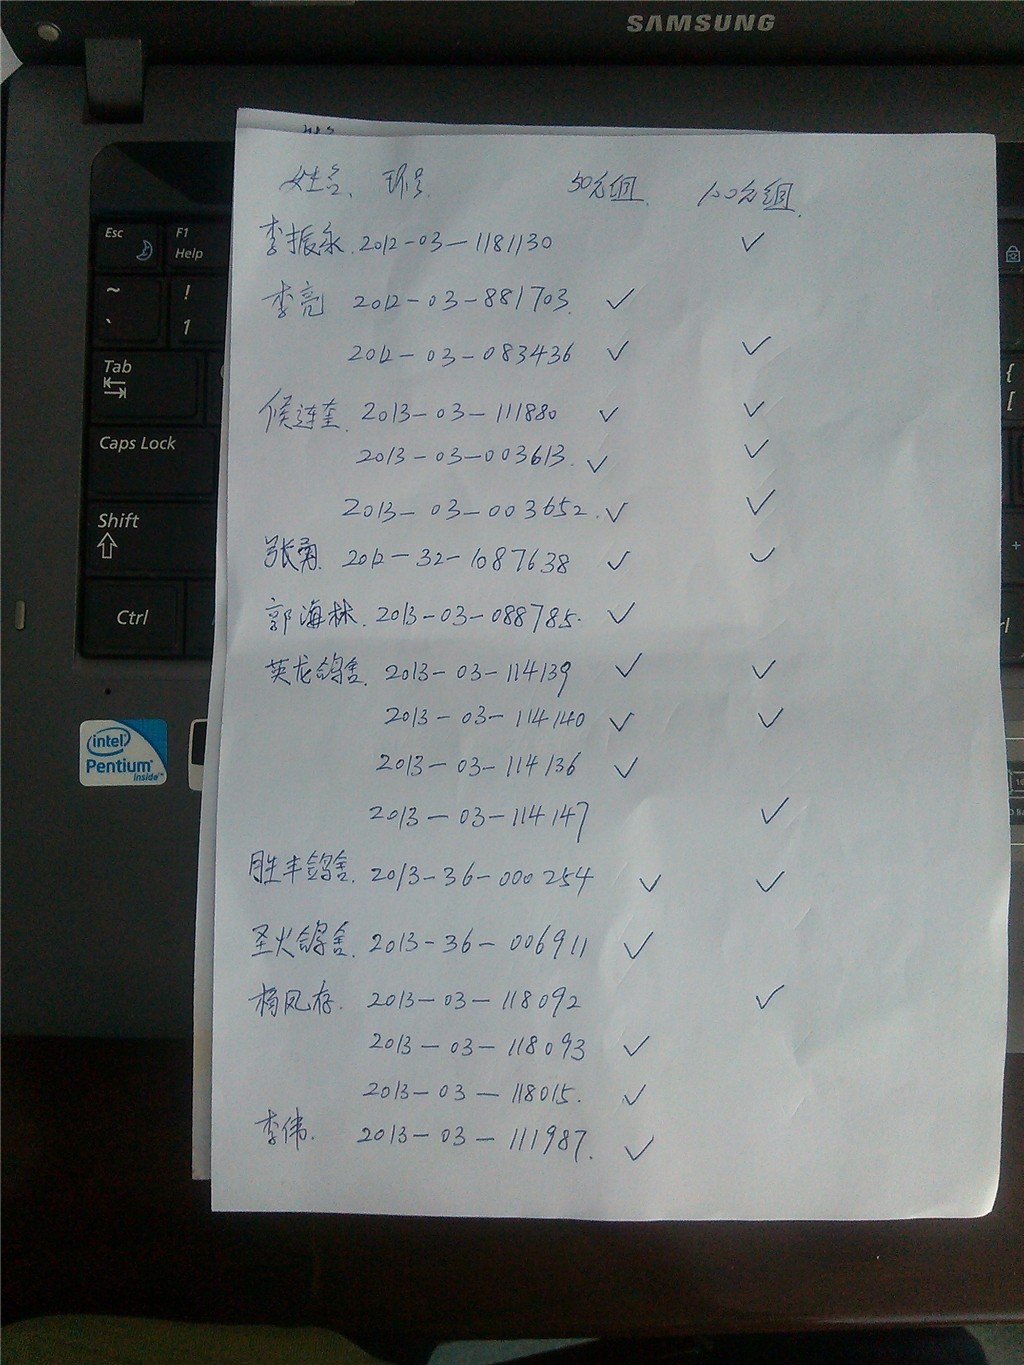 SAMSUNG
姓名、环号. 50元组. 100元组.
Esc F1 Help
李振永.2012-03-1181130 ✓
~ ` ! 1
李亮 2012-03-881703. ✓
2012-03-083436 ✓ ✓
Tab
{ [
候连奎. 2013-03-111880 ✓ ✓
Caps Lock
2013-03-003613. ✓ ✓
2013-03-003652. ✓ ✓
Shift
+
张勇. 2012-32-1087638 ✓ ✓
郭海林. 2013-03-088785. ✓
Ctrl
英龙鸽舍. 2013-03-114139 ✓ ✓
2013-03-114140 ✓ ✓
intel
Pentium
inside™
2013-03-114136 ✓
2013-03-114147 ✓
胜丰鸽舍. 2013-36-000254 ✓ ✓
圣火鸽舍. 2013-36-006911 ✓
杨凤存. 2013-03-118092 ✓
2013-03-118093 ✓
2013-03-118015. ✓
李伟. 2013-03-111987. ✓